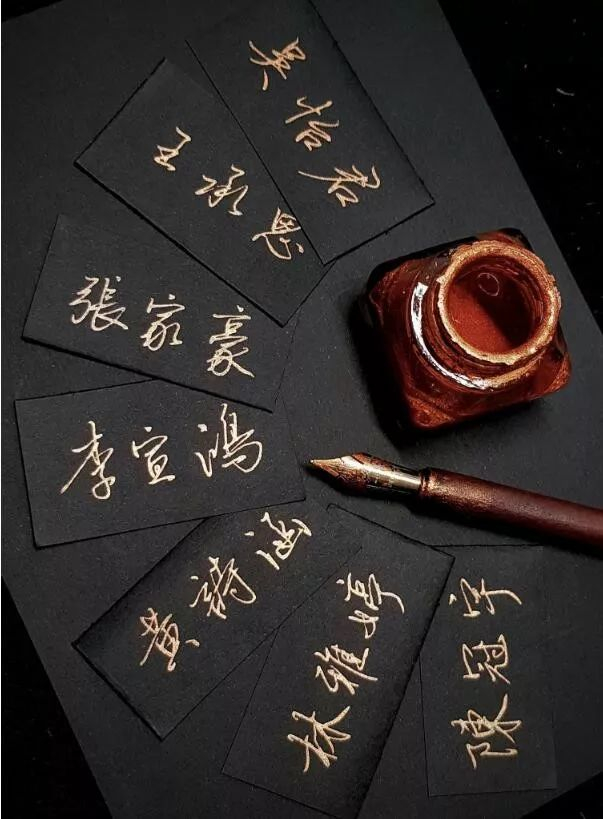 吳怡君
王承恩
張家豪
李宣鴻
黃詩涵
林雅婷
陳冠宇